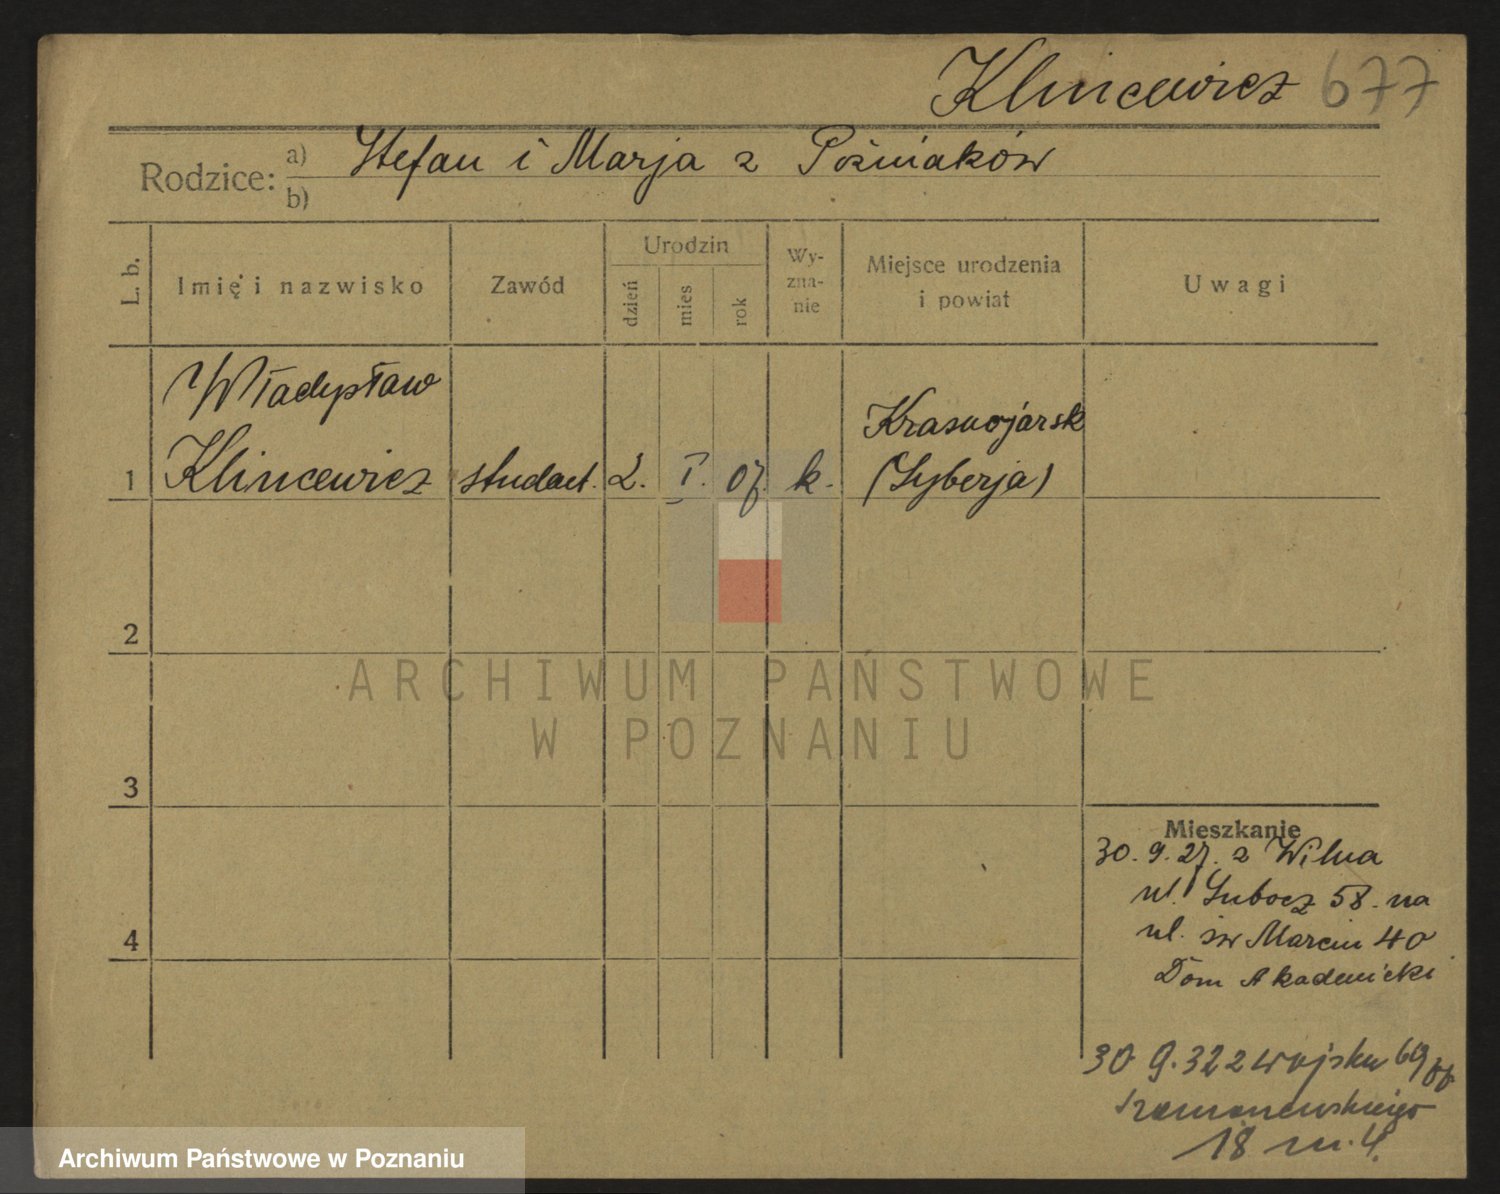 Klincewicz 677
Rodzice: a) Stefan i Marja z Poźniaków
b)
L. b.
Imię i nazwisko
Zawód
Urodzin
dzień
mies
rok
Wy-
zna-
nie
Miejsce urodzenia
i powiat
Uwagi
Władysław
Krasnojarsk
1 Klincewicz student. 2. I. 07. k. (Syberja)
2
ARCHIWUM PAŃSTWOWE
W POZNANIU
3
Mieszkanie
30. 9. 27. z Wilna
ul. Subocz 58. na
4
ul. św Marcin 40
Dom Akademicki
30 9. 32 z wojska 69
18 m. 4.
Archiwum Państwowe w Poznaniu